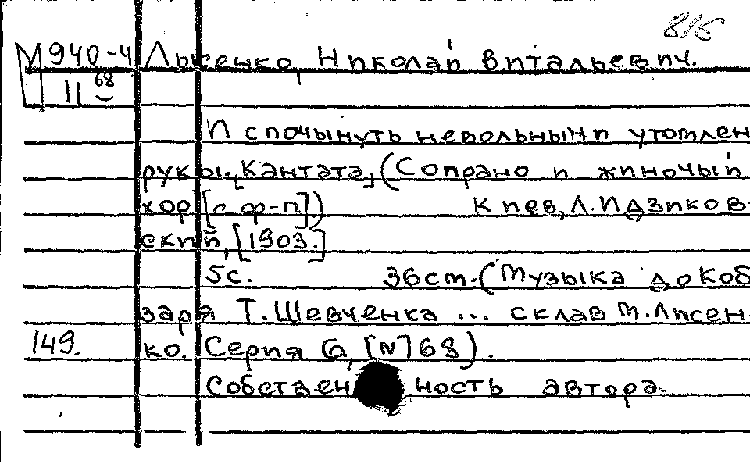 815
М940-4 Лысенко, Николай Витальевич.
II 68
И спочынуть невольнычи утомлен
рукы. [Кантата] (Сопрано и жиночый
хор [с ф-п]) Киев, Л. Идзиков-
ский, [1903.]
5с. 36cm. (Музыка до Коб
заря Т. Шевченка ... склав М. Лисен-
149. ко. Серия 6, [N] 68).
Собствен ность автора